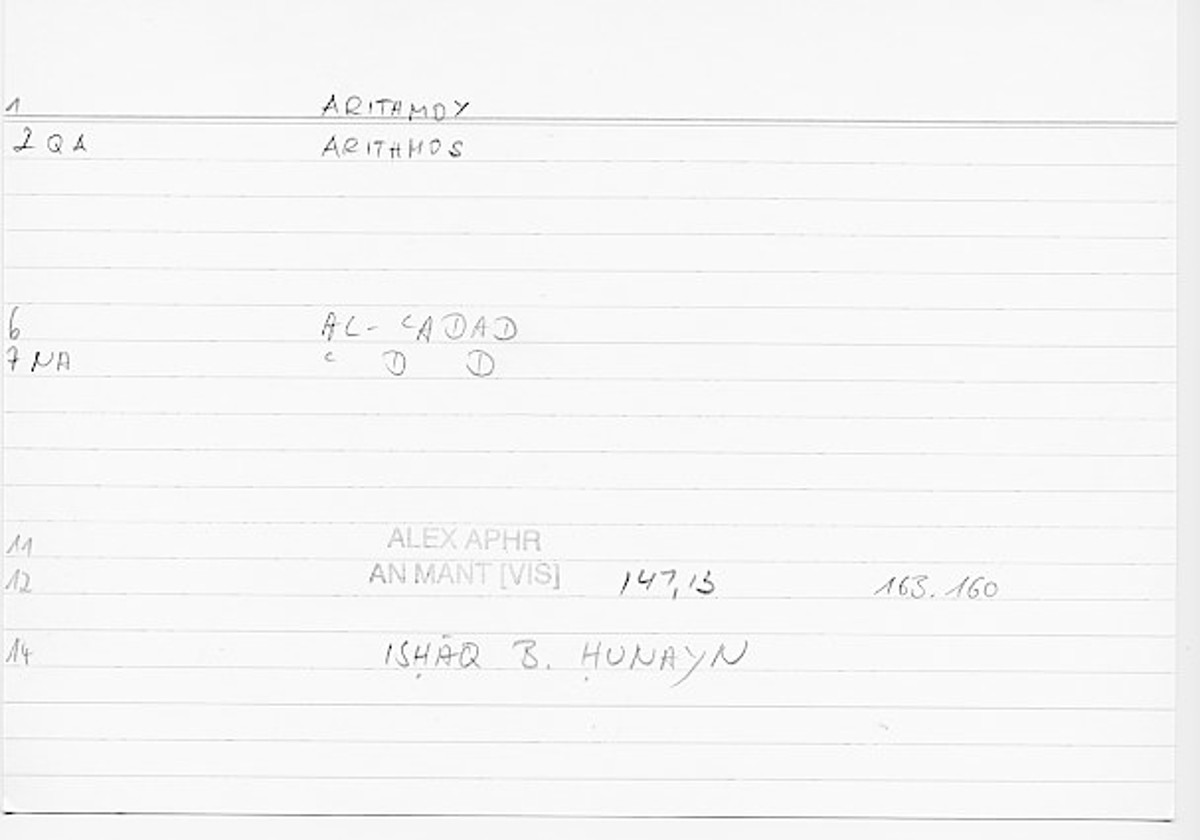 1 ARITHMOY
2 QA ARITHMOS
6 AL-ʿADAD
7 NA ʿ D D
11 ALEX APHR
12 AN MANT [VIS] 147,13 163.160
14 ISḤĀQ B. ḤUNAYN